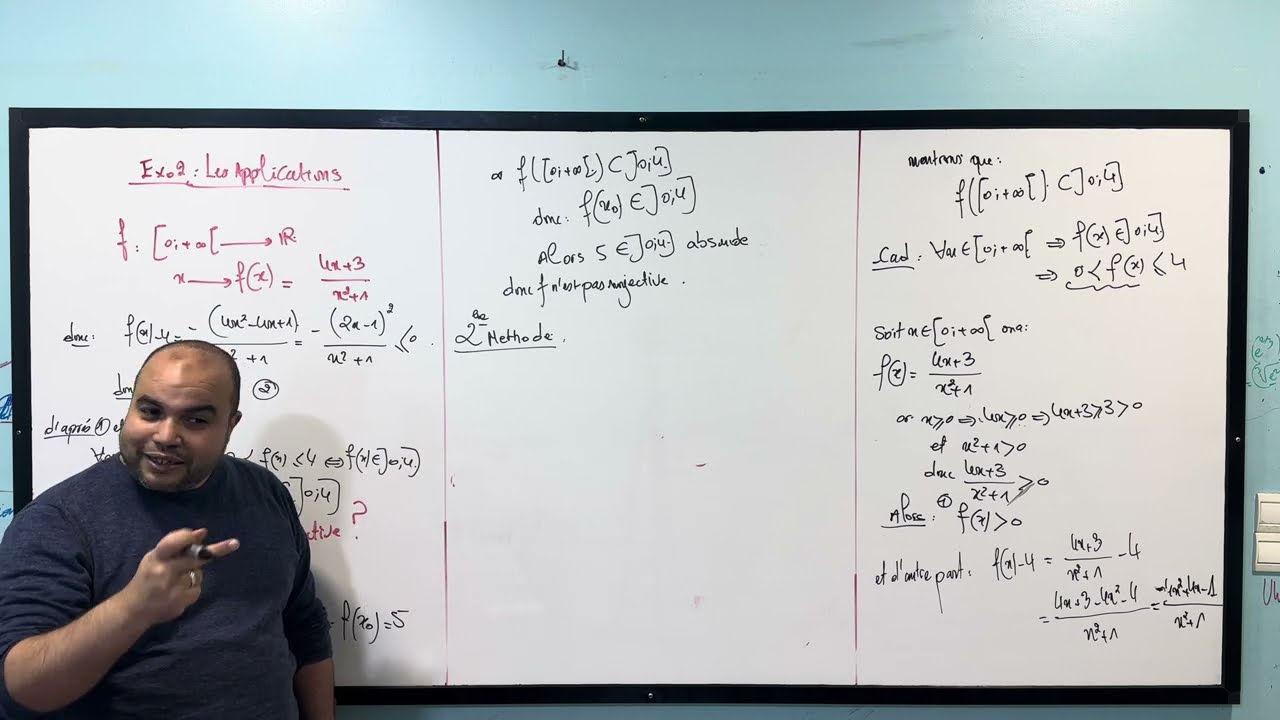 Exo2 : Les Applications
f : [0;+∞[ → IR
x → f(x) = 4x+3 / x²+1
donc: f(x)-4 = -(4x²-4x+1) / x²+1 = -(2x-1)² / x²+1 ≤ 0.
②
d'après ① et
f(x) ≤ 4 ⇔ f(x) ∈ ]0;4]
]0;4]
ctive ?
f(x₀)=5
or f([0;+∞[) ⊂ ]0;4]
donc: f(x₀) ∈ ]0;4]
Alors 5 ∈ ]0;4] absurde
donc f n'est pas surjective.
2ème Methode.
montrons que:
f([0;+∞[) ⊂ ]0;4]
Cad : ∀x ∈ [0;+∞[ ⇒ f(x) ∈ ]0;4]
⇒ 0 < f(x) ≤ 4
Soit x ∈ [0;+∞[ ona:
f(x) = 4x+3 / x²+1
or x≥0 ⇒ 4x≥0 ⇒ 4x+3≥3>0
et x²+1>0
donc 4x+3 / x²+1 > 0
Alors : ① f(x)>0
et d'autre part: f(x)-4 = 4x+3 / x²+1 - 4
= 4x+3-4x²-4 / x²+1 = -4x²+4x-1 / x²+1